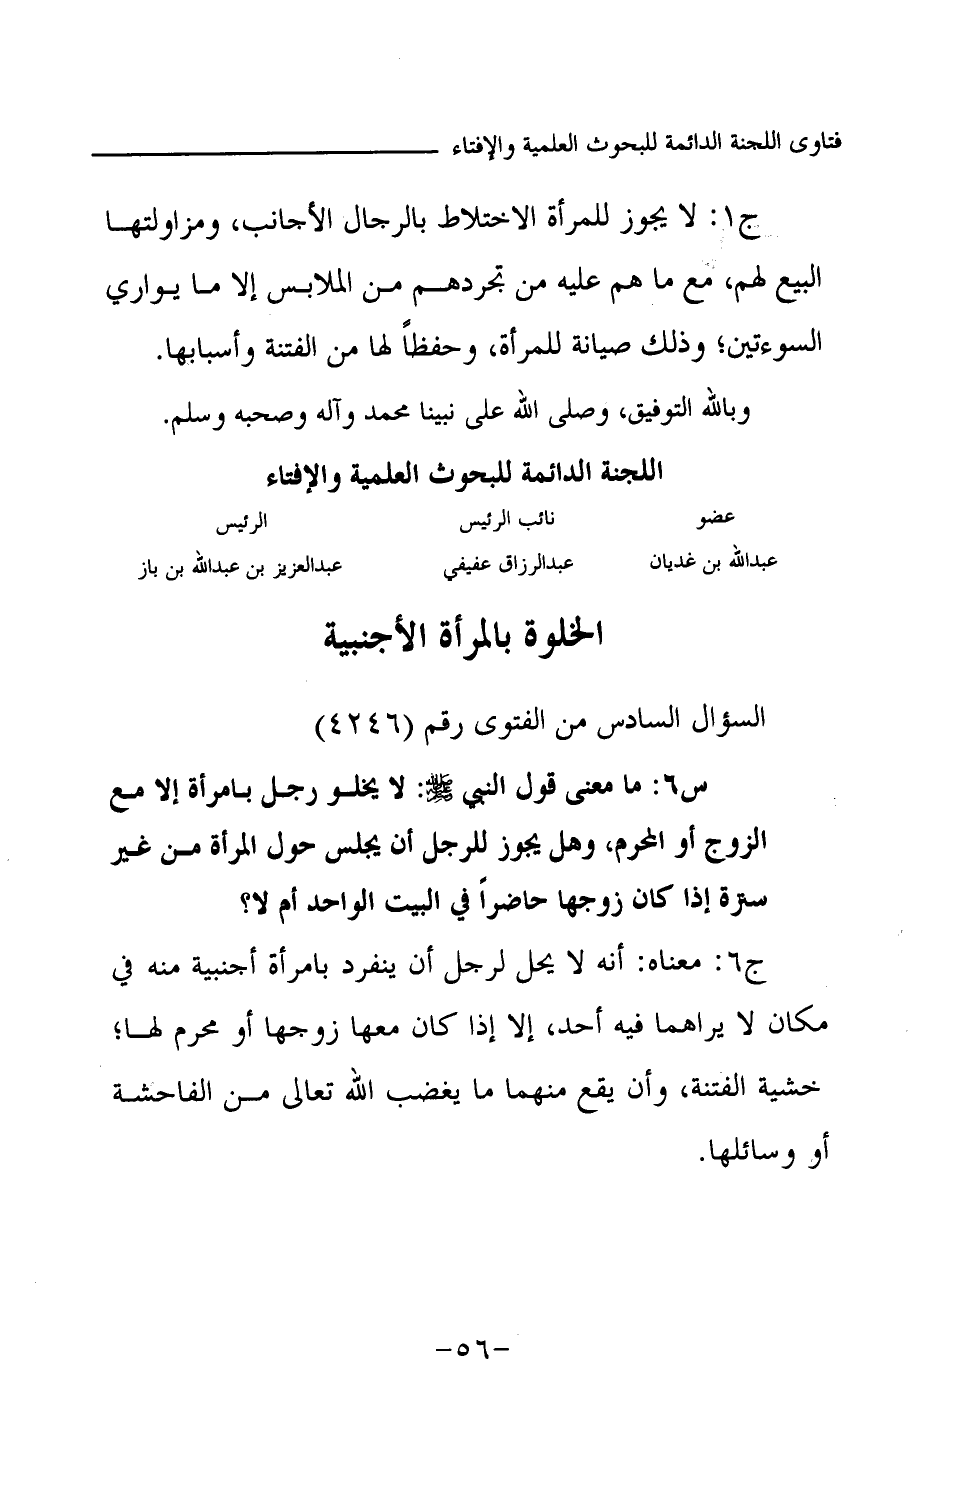 فتاوى اللجنة الدائمة للبحوث العلمية والإفتاء
ج١: لا يجوز للمرأة الاختلاط بالرجال الأجانب، ومزاولتهـا
البيع لهم، مع ما هم عليه من تجردهـم مـن الملابـس إلا مـا يـواري
السوءتين؛ وذلك صيانة للمرأة، وحفظاً لها من الفتنة وأسبابها.
وبالله التوفيق، وصلى الله على نبينا محمد وآله وصحبه وسلم.
اللجنة الدائمة للبحوث العلمية والإفتاء
عضو نائب الرئيس الرئيس
عبدالله بن غديان عبدالرزاق عفيفي عبدالعزيز بن عبدالله بن باز
الخلوة بالمرأة الأجنبية
السؤال السادس من الفتوى رقم (٤٢٤٦)
س٦: ما معنى قول النبي ﷺ: لا يخلـو رجـل بـامرأة إلا مـع
الزوج أو المحرم، وهل يجوز للرجل أن يجلس حول المرأة مـن غـير
سترة إذا كان زوجها حاضراً في البيت الواحد أم لا؟
ج٦: معناه: أنه لا يحل لرجل أن ينفرد بامرأة أجنبية منه في
مكان لا يراهما فيه أحد، إلا إذا كان معها زوجها أو محرم لهـا؛
خشية الفتنة، وأن يقع منهما ما يغضب الله تعالى مـن الفاحشـة
أو وسائلها.
-٥٦-